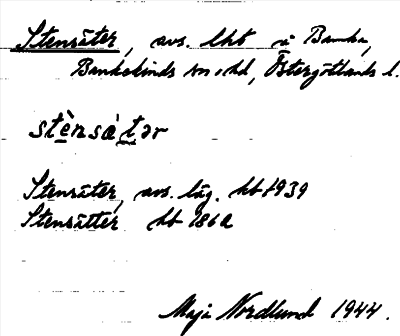 Stensäter, avs. lht å Banka,
Bankekinds sn o hd, Östergötlands l.
stènsàtər
Stensäter, avs. läg. kb 1939
Stensätter kb 1862
Maja Nordlund 1944.